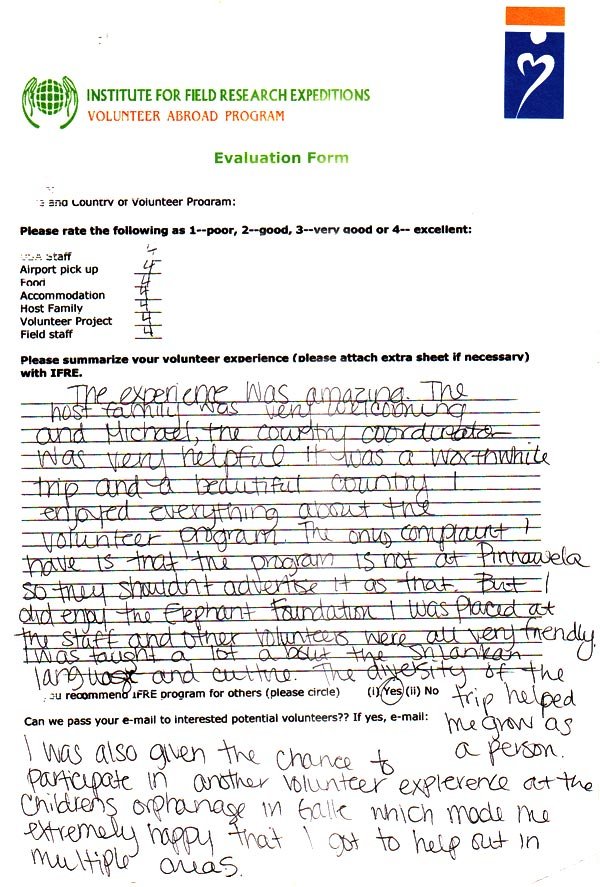 INSTITUTE FOR FIELD RESEARCH EXPEDITIONS
VOLUNTEER ABROAD PROGRAM
Evaluation Form
and Country of Volunteer Program:
Please rate the following as 1--poor, 2--good, 3--very good or 4-- excellent:
Staff 4
Airport pick up 4
Food 4
Accommodation 4
Host Family 4
Volunteer Project 4
Field staff 4
Please summarize your volunteer experience (please attach extra sheet if necessary)
with IFRE.
The experience was amazing. The
host family was very welcoming
and Michael, the country coordinator
was very helpful It was a worthwhile
trip and a beautiful country I
enjoyed everything about the
volunteer program. The only complaint I
have is that the program is not at Pinnawela
so they shouldnt advertise it as that. But I
did enjoy the Elephant Foundation I was placed at
the staff and other volunteers were all very friendly.
I was taught a lot about the Srilankan
language and culture. The diversity of the
you recommend IFRE program for others (please circle) (i) Yes (ii) No trip helped
Can we pass your e-mail to interested potential volunteers?? If yes, e-mail: me grow as
a person.
I was also given the chance to
participate in another volunteer experience at the
Childrens orphanage in Galle which made me
extremely happy that I got to help out in
multiple areas.